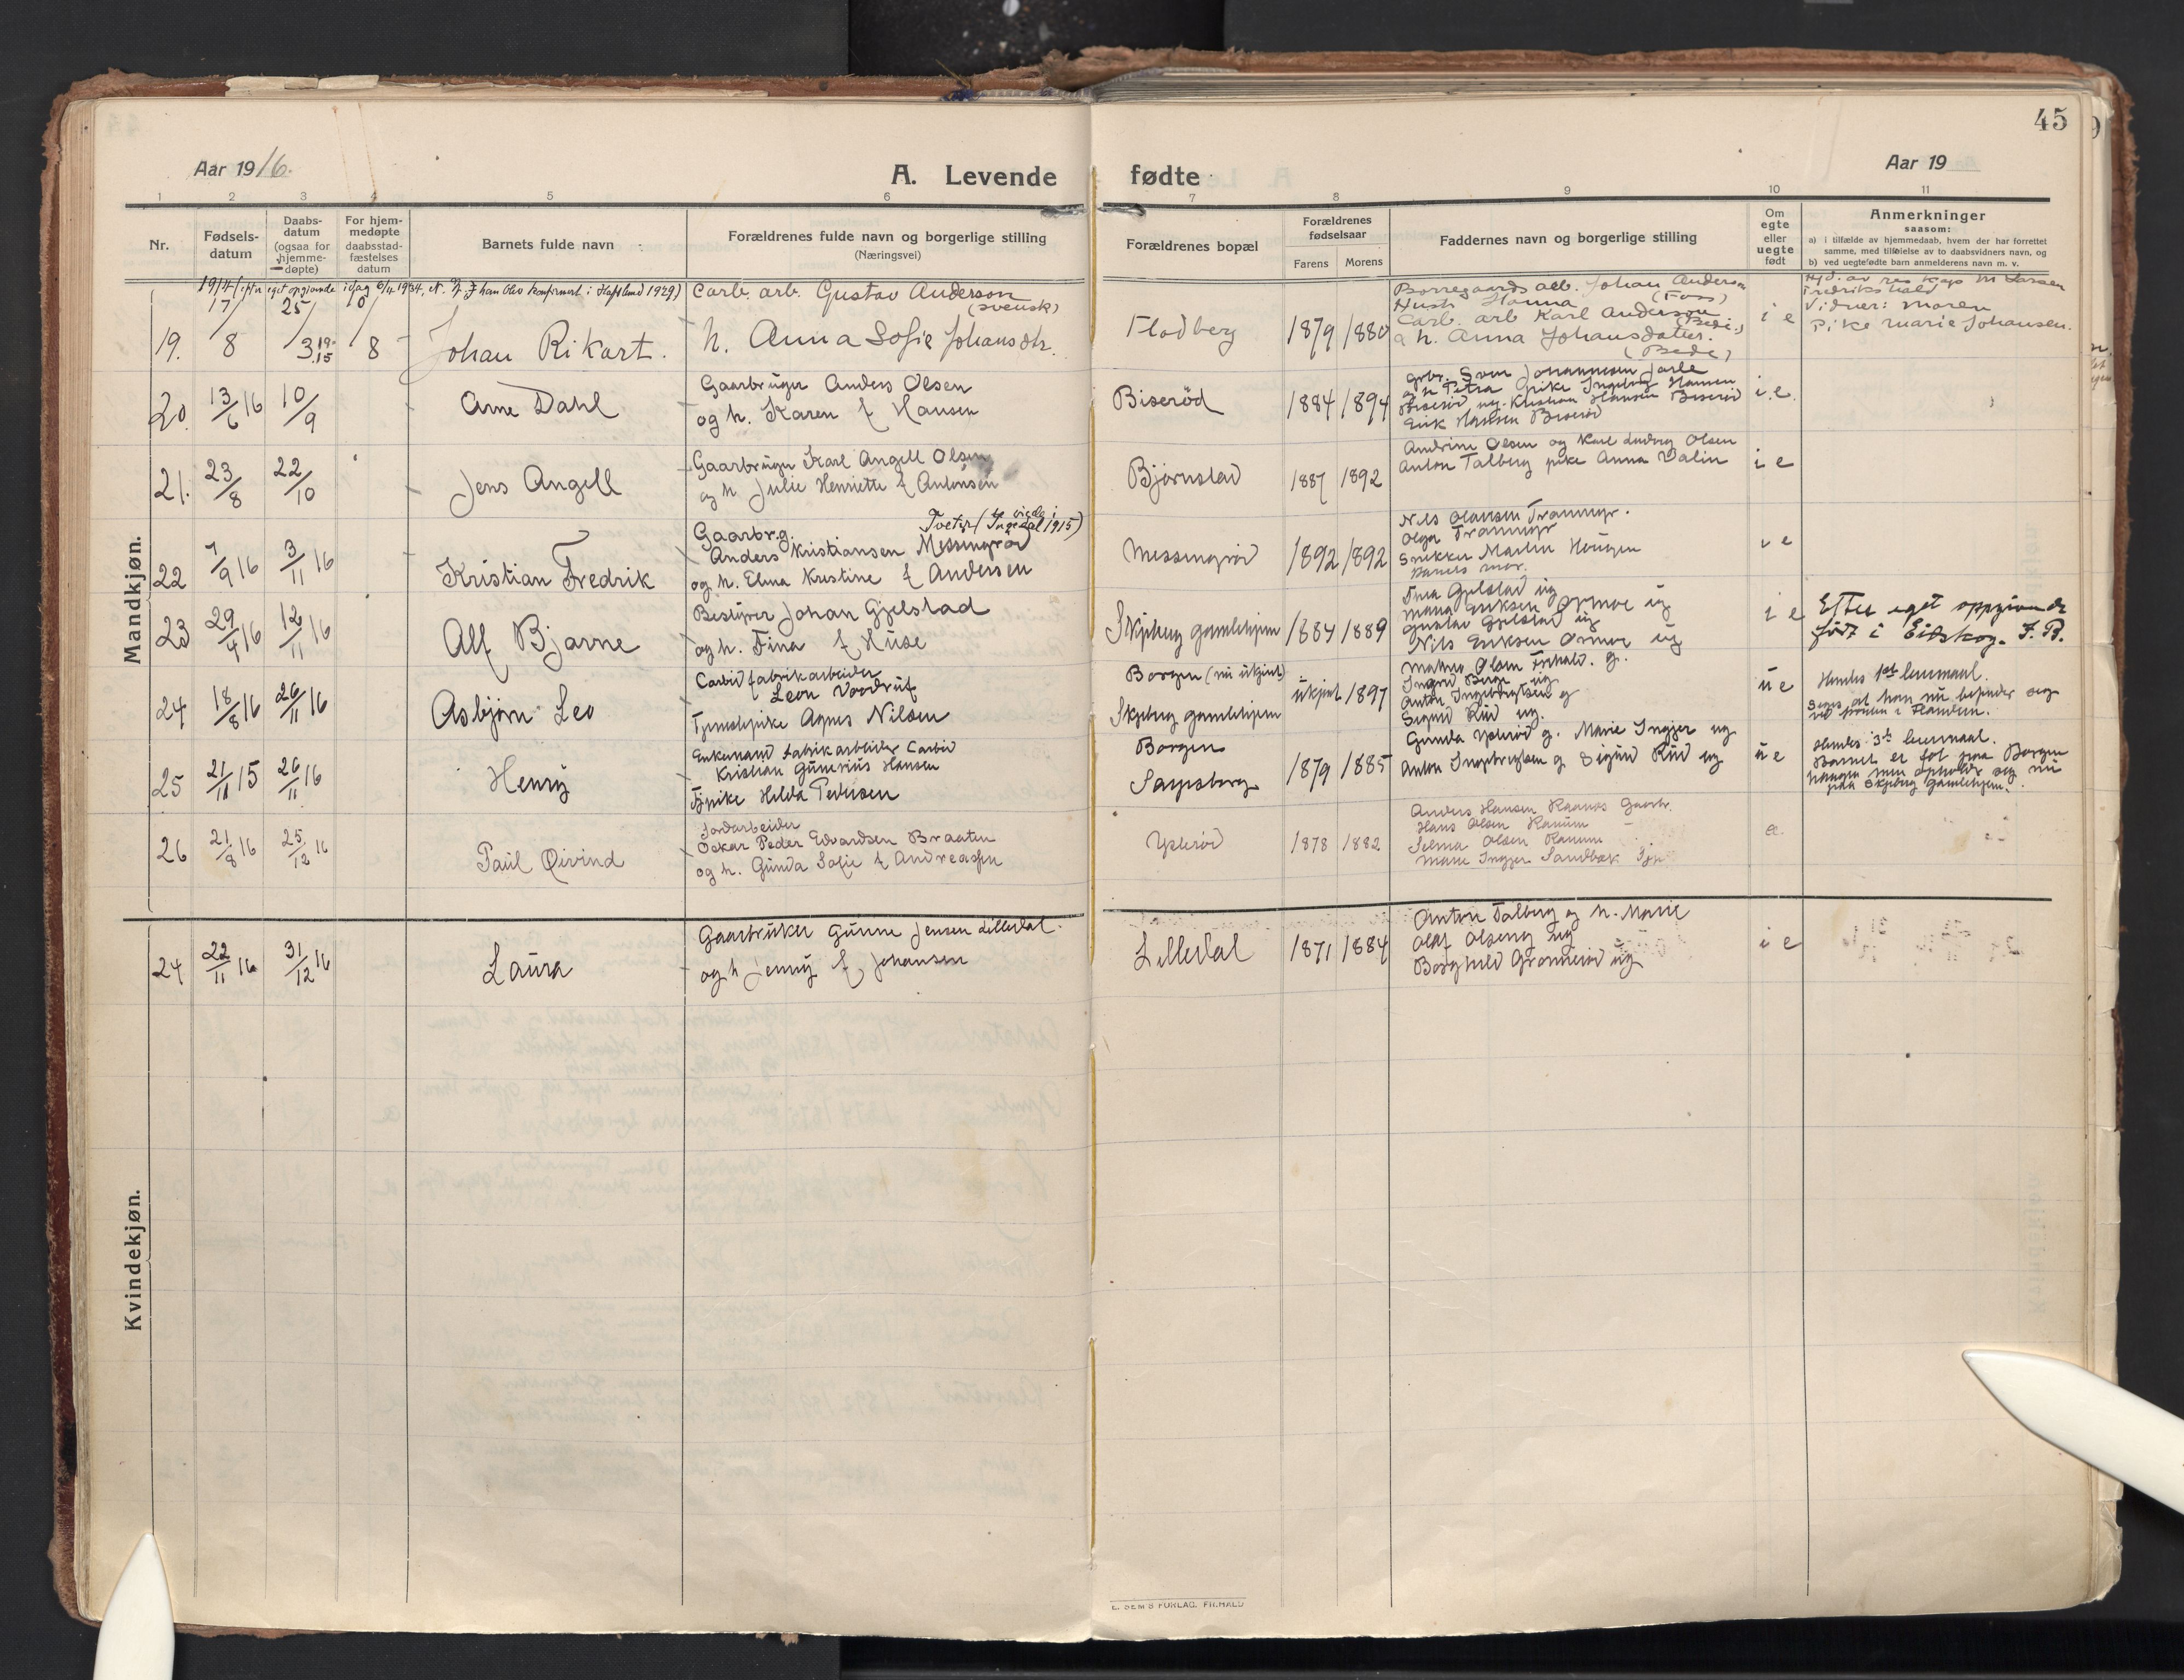 45
Aar 1916.
A. Levende fødte
Aar 19
1 2 3 4 5 6 7 8 9 10 11
Nr.
Fødsels-
datum
Daabs-
datum
(ogsaa for
hjemme-
døpte)
For hjem-
medøpte
daabsstad-
fæstelses
datum
Barnets fulde navn
Forældrenes fulde navn og borgerlige stilling
(Næringsvei)
Forældrenes bopæl
Forældrenes
fødselsaar
Farens Morens
Faddernes navn og borgerlige stilling
Om
egte
eller
uegte
født
Anmerkninger
saasom:
a) i tilfælde av hjemmedaab, hvem der har forrettet
samme, med tilføielse av to daabsvidners navn, og
b) ved uegtefødte barn anmelderens navn m. v.
Mandkjøn.
1914 (efter eget opgivende idag 6/4 1934, konfirmert i Hafslund 1929)
19. 17/8 25/3 19-15 10/8
Johan Rikart.
Carb. arb. Gustav Anderson
(svensk)
h. Anna Sofie Johansdtr.
Flodberg
1879 1880
Borregaards arb. Johan Anderson
Hustr Hanna (Foss)
Carb. arb Karl Anderson
a h. Anna Johansdatter.
i e
Fredrikshald
Vidner: Maren
Pike Marie Johansen.
20. 13/6 16 10/9
Arne Dahl
Gaarbruger Anders Olsen
og h. Karen f Hansen
Biserød
1884 1894
grbr. Sven Johannesen Jarle
og h Petra pike Ingeborg Hansen
Biserød ug. Kristian Hansen Biserød
Erik Hansen Biserød
i.e.
21. 23/8 22/10
Jens Angell
Gaarbruger Karl Angell Olsen
og h Julie Henriette f Antonsen
Bjørnstad
1887 1892
Andrine Olsen og Karl Ludvig Olsen
Anton Talberg pike Anna Dalin
i e
22 7/9 16 3/11 16
Kristian Fredrik
Gaarbrg. Tveter (Ingedal 1915)
Anders Kristiansen Messingrød
og h. Elma Kristine f Andersen
Messingrød
1892 1892
Nils Olausen
Olga
Snekker Martin Haugen
Barnets mor.
i e
23 29/4 16 12/11 16
Alf Bjarne
Bestyrer Johan Gjelstad
og h. Fina f Huse
Skjeberg gamlehjem
1884 1889
Fina Gjelstad
Maria Eriksen Ormoe ug
Gustav Gjelstad ug
Nils Eriksen Ormoe ug
i e
Efter eget oppgivende
født i Eidskog. F. B.
24 18/8 16 26/11 16
Asbjørn Leo
Carbidfabrikarbeider
Leon Voodruf
Tjenestepike Agnes Nilsen
Borgen (nu ukjent)
Skjeberg gamlehjem
ukjent 1897
Mathea Olsen Frhald. g.
Ingrid Berge ug
Anton Ingebrigtsen g
Sigurd Riid ug.
u e
Hendes 1ste leiermaal.
Siges at han nu befinder seg
ved fronten i Flandern.
25 21/11 15 26/11 16
Henry
Enkemand fabrikarbeider Carbid
Kristian Gunerius Hansen
Tjpike Hilda Pedersen
Borgen
Sarpsborg
1879 1885
Gunda Ysterød g. Marie Ingjer ug
Anton Ingebrigtsen g Sigurd Riid ug
u e
Hendes 3de leiermaal.
Barnet er født paa Borgen
paa Skjeberg gamlehjem.
26 21/8 16 25/12 16
Paul Øivind
Jordarbeider
Oskar Peder Edvardsen Braaten
og h. Gunda Sofie f Andreassen
Ysterød
1878 1882
Anders Hansen Gaarbr.
Hans Olsen Ranum
Selma Olsen Ranum
Marie Ingjer Sandbæk
e.
Kvindekjøn.
24 22/11 16 31/12 16
Laura
Gaarbruker Gunne Jensen Lilledal.
og h Jenny f Johansen
Lilledal
1871 1884
Anton Talberg og h. Marie
Olaf Olseng ug
Borghild Grønnerød ug
i e
E. SEM'S FORLAG. FR.HALD